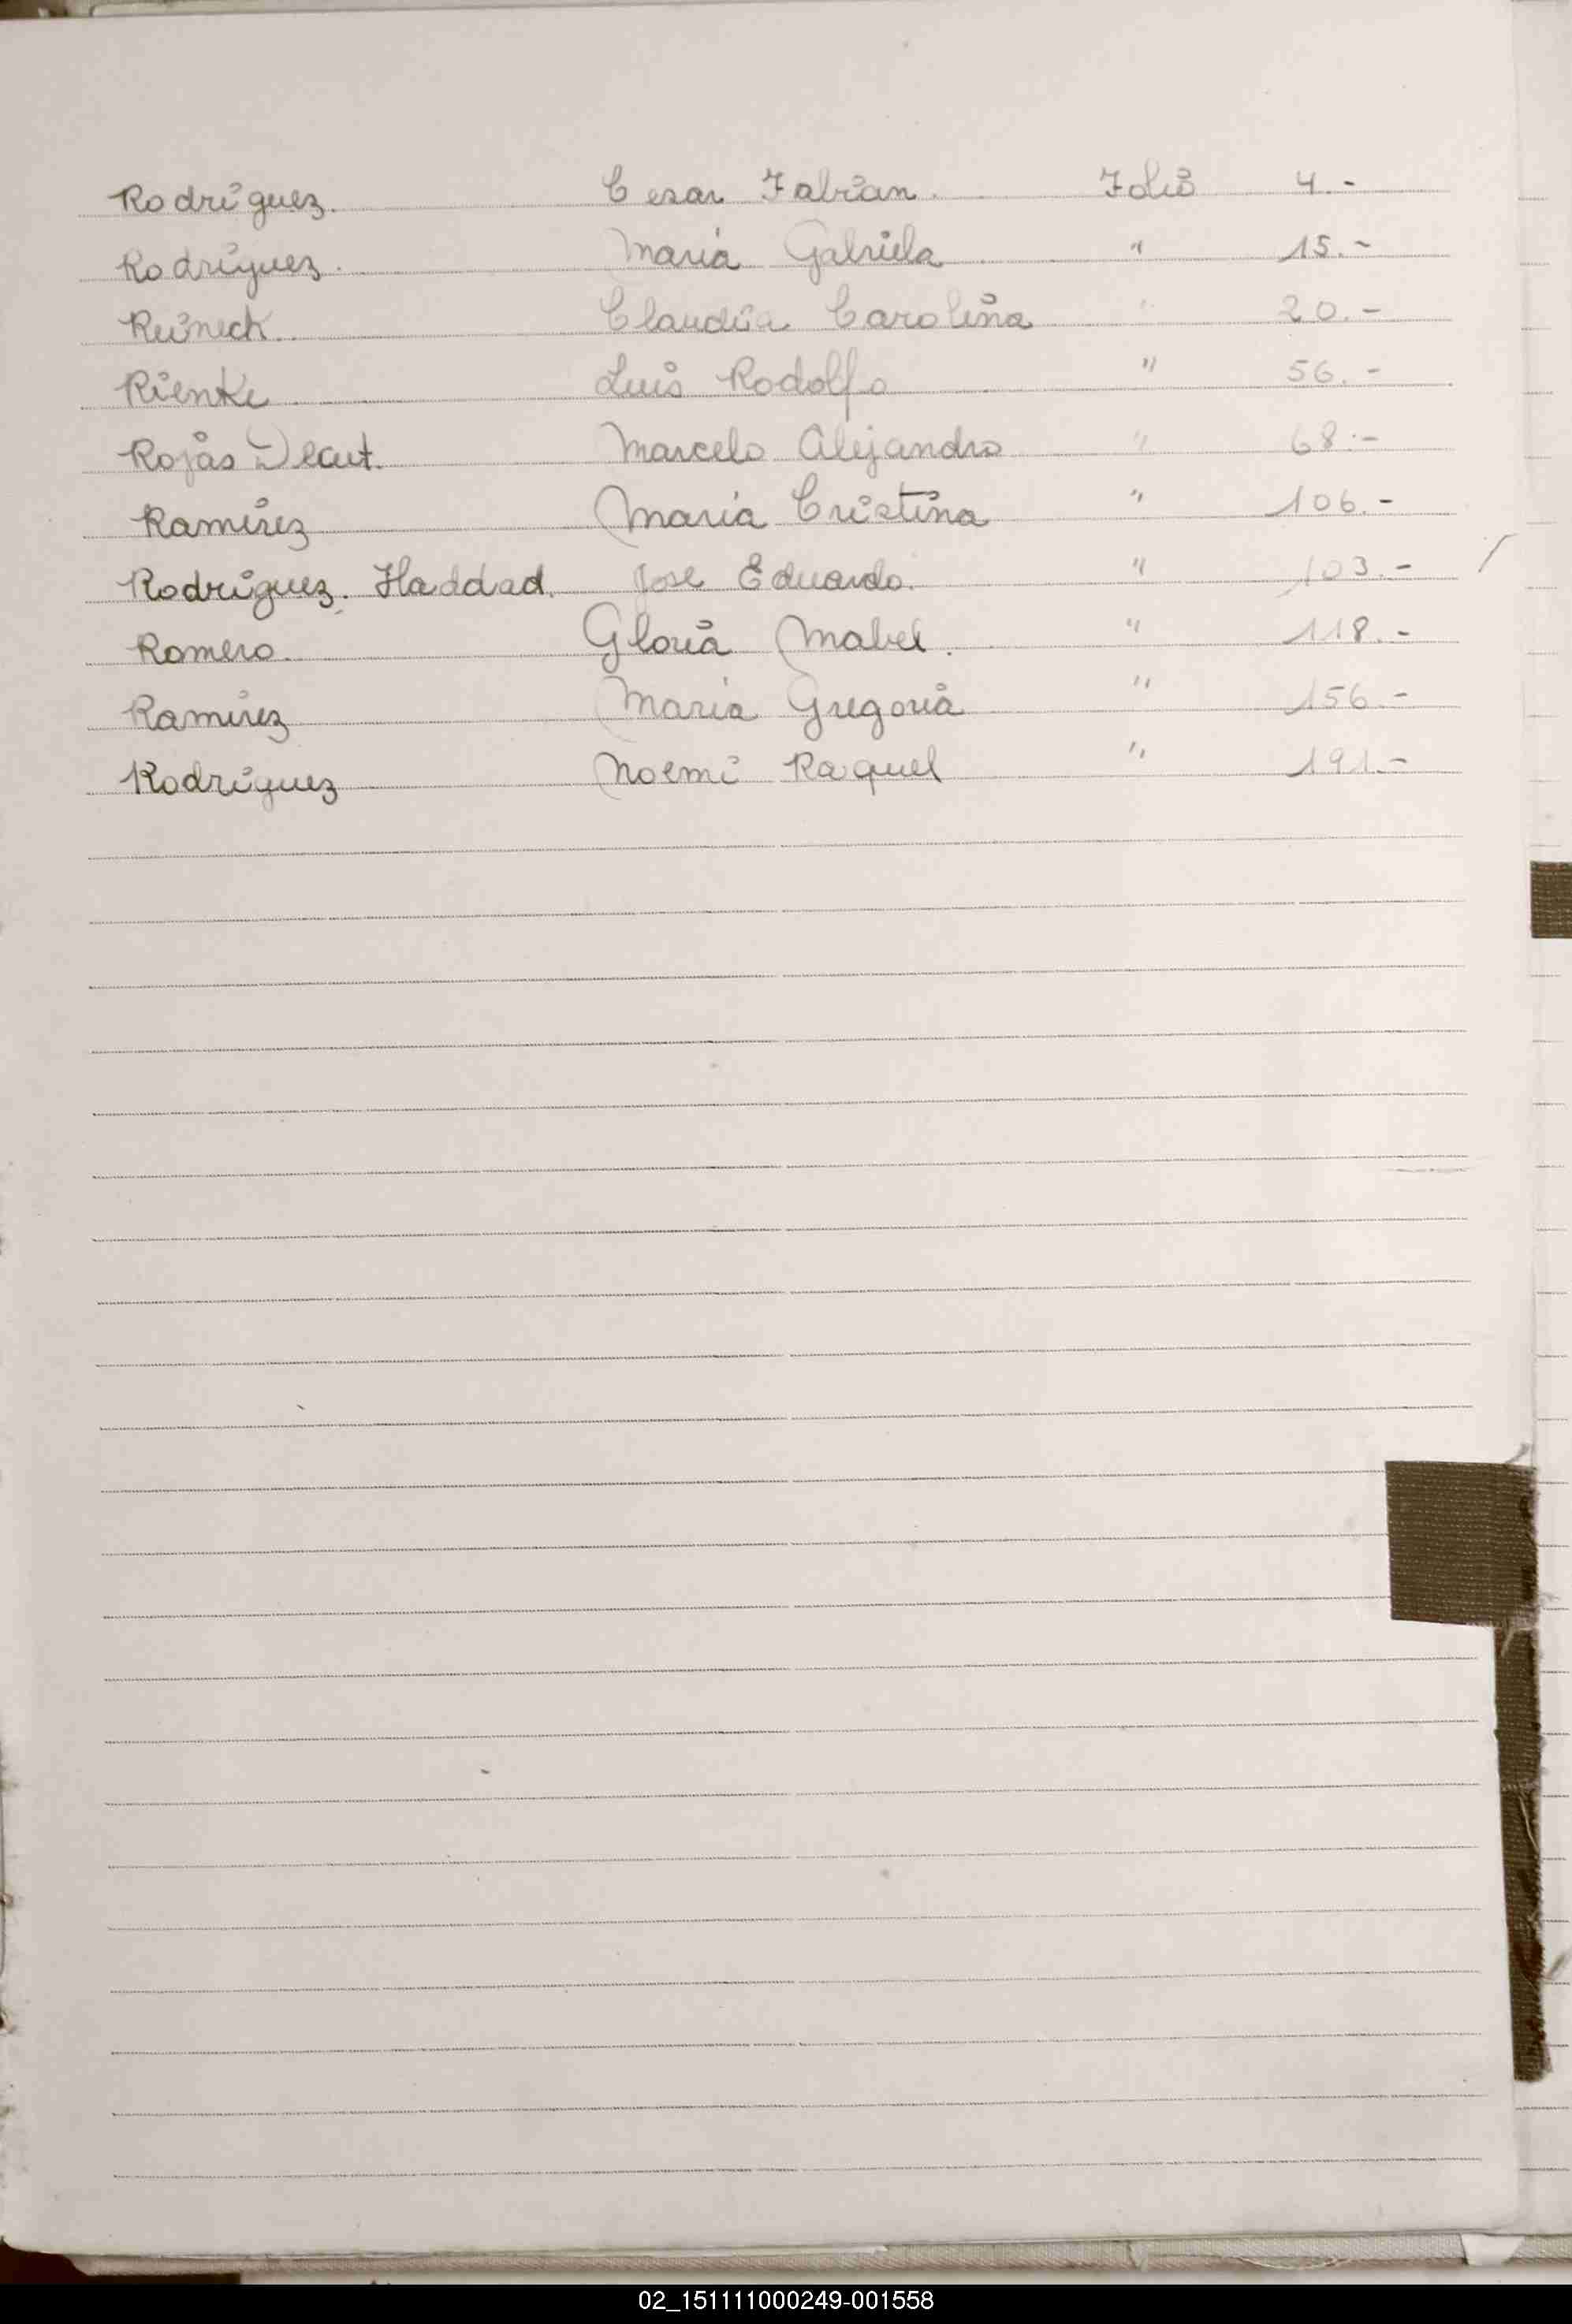 Rodriguez. Cesar Fabian. Folio 4.-
Rodriguez. Maria Gabriela " 15.-
Reineck. Claudia Carolina " 20.-
Rienke Luis Rodolfo " 56.-
Rojas Marcelo Alejandro " 68.-
Ramirez Maria Cristina " 106.-
Rodriguez. Haddad. Jose Eduardo. " 103.-
Romero. Gloria Mabel. " 118.-
Ramirez Maria Gregoria " 156.-
Rodriguez Noemi Raquel " 191.-
02_151111000249-001558